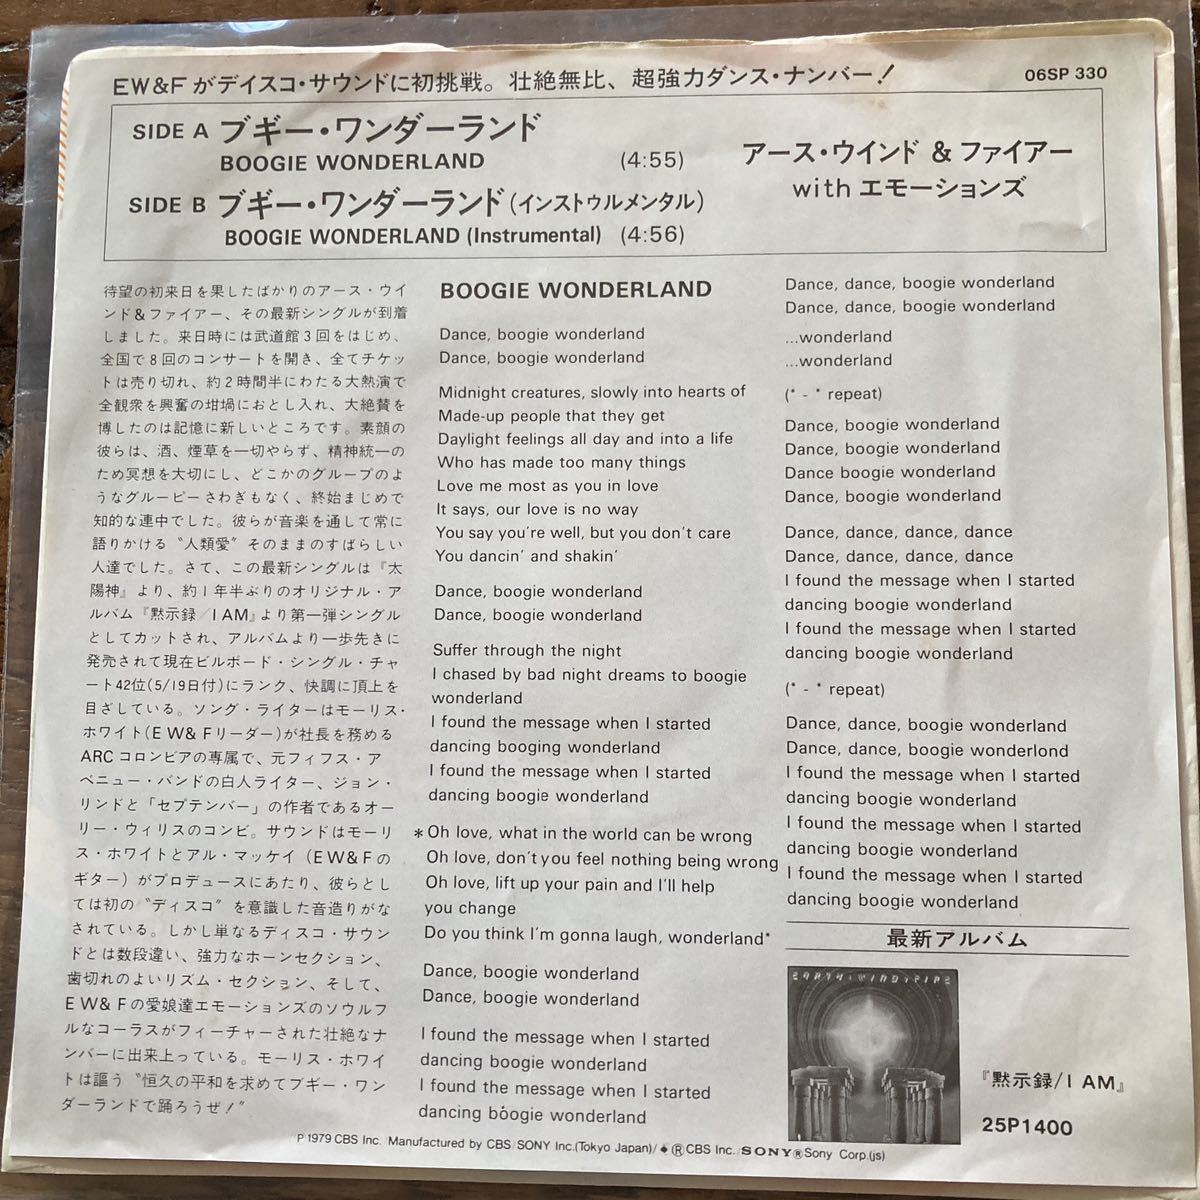 EW&Fがデイスコ・サウンドに初挑戦。壮絶無比、超強力ダンス・ナンバー!
06SP 330
SIDE A ブギー・ワンダーランド
BOOGIE WONDERLAND (4:55)
SIDE B ブギー・ワンダーランド(インストゥルメンタル)
BOOGIE WONDERLAND (Instrumental) (4:56)
アース・ウインド & ファイアー
with エモーションズ
待望の初来日を果したばかりのアース・ウイ
ンド&ファイアー、その最新シングルが到着
しました。来日時には武道館3回をはじめ、
全国で8回のコンサートを開き、全てチケッ
トは売り切れ、約2時間半にわたる大熱演で
全観衆を興奮の坩堝におとし入れ、大絶賛を
博したのは記憶に新しいところです。素顔の
彼らは、酒、煙草を一切やらず、精神統一の
ため冥想を大切にし、どこかのグループのよ
うなグルーピーさわぎもなく、終始まじめで
知的な連中でした。彼らが音楽を通して常に
語りかける〝人類愛〟そのままのすばらしい
人達でした。さて、この最新シングルは『太
陽神』より、約1年半ぶりのオリジナル・ア
ルバム『黙示録/I AM』より第一弾シングル
としてカットされ、アルバムより一歩先きに
発売されて現在ビルボード・シングル・チャ
ート42位(5/19日付)にランク、快調に頂上を
目ざしている。ソング・ライターはモーリス・
ホワイト(EW&Fリーダー)が社長を務める
ARCコロンビアの専属で、元フィフス・ア
ベニュー・バンドの白人ライター、ジョン・
リンドと「セプテンバー」の作者であるオー
リー・ウィリスのコンビ。サウンドはモーリ
ス・ホワイトとアル・マッケイ(EW&Fの
ギター)がプロデュースにあたり、彼らとし
ては初の〝ディスコ〟を意識した音造りがな
されている。しかし単なるディスコ・サウン
ドとは数段違い、強力なホーンセクション、
歯切れのよいリズム・セクション、そして、
EW&Fの愛娘達エモーションズのソウルフ
ルなコーラスがフィーチャーされた壮絶なナ
ンバーに出来上っている。モーリス・ホワイ
トは謳う〝恒久の平和を求めてブギー・ワン
ダーランドで踊ろうぜ!〟
BOOGIE WONDERLAND
Dance, boogie wonderland
Dance, boogie wonderland
Midnight creatures, slowly into hearts of
Made-up people that they get
Daylight feelings all day and into a life
Who has made too many things
Love me most as you in love
It says, our love is no way
You say you're well, but you don't care
You dancin' and shakin'
Dance, boogie wonderland
Dance, boogie wonderland
Suffer through the night
I chased by bad night dreams to boogie
wonderland
I found the message when I started
dancing booging wonderland
I found the message when I started
dancing boogie wonderland
*Oh love, what in the world can be wrong
Oh love, don't you feel nothing being wrong
Oh love, lift up your pain and I'll help
you change
Do you think I'm gonna laugh, wonderland*
Dance, boogie wonderland
Dance, boogie wonderland
I found the message when I started
dancing boogie wonderland
I found the message when I started
dancing boogie wonderland
Dance, dance, boogie wonderland
Dance, dance, boogie wonderland
...wonderland
...wonderland
(* - * repeat)
Dance, boogie wonderland
Dance, boogie wonderland
Dance boogie wonderland
Dance, boogie wonderland
Dance, dance, dance, dance
Dance, dance, dance, dance
I found the message when I started
dancing boogie wonderland
I found the message when I started
dancing boogie wonderland
(* - * repeat)
Dance, dance, boogie wonderland
Dance, dance, boogie wonderlond
I found the message when I started
dancing boogie wonderland
I found the message when I started
dancing boogie wonderland
I found the message when I started
dancing boogie wonderland
最新アルバム
EARTH, WIND & FIRE
『黙示録/I AM』
25P1400
P 1979 CBS Inc. Manufactured by CBS/SONY Inc.(Tokyo Japan)/ ® CBS Inc. SONY® Sony Corp.(js)